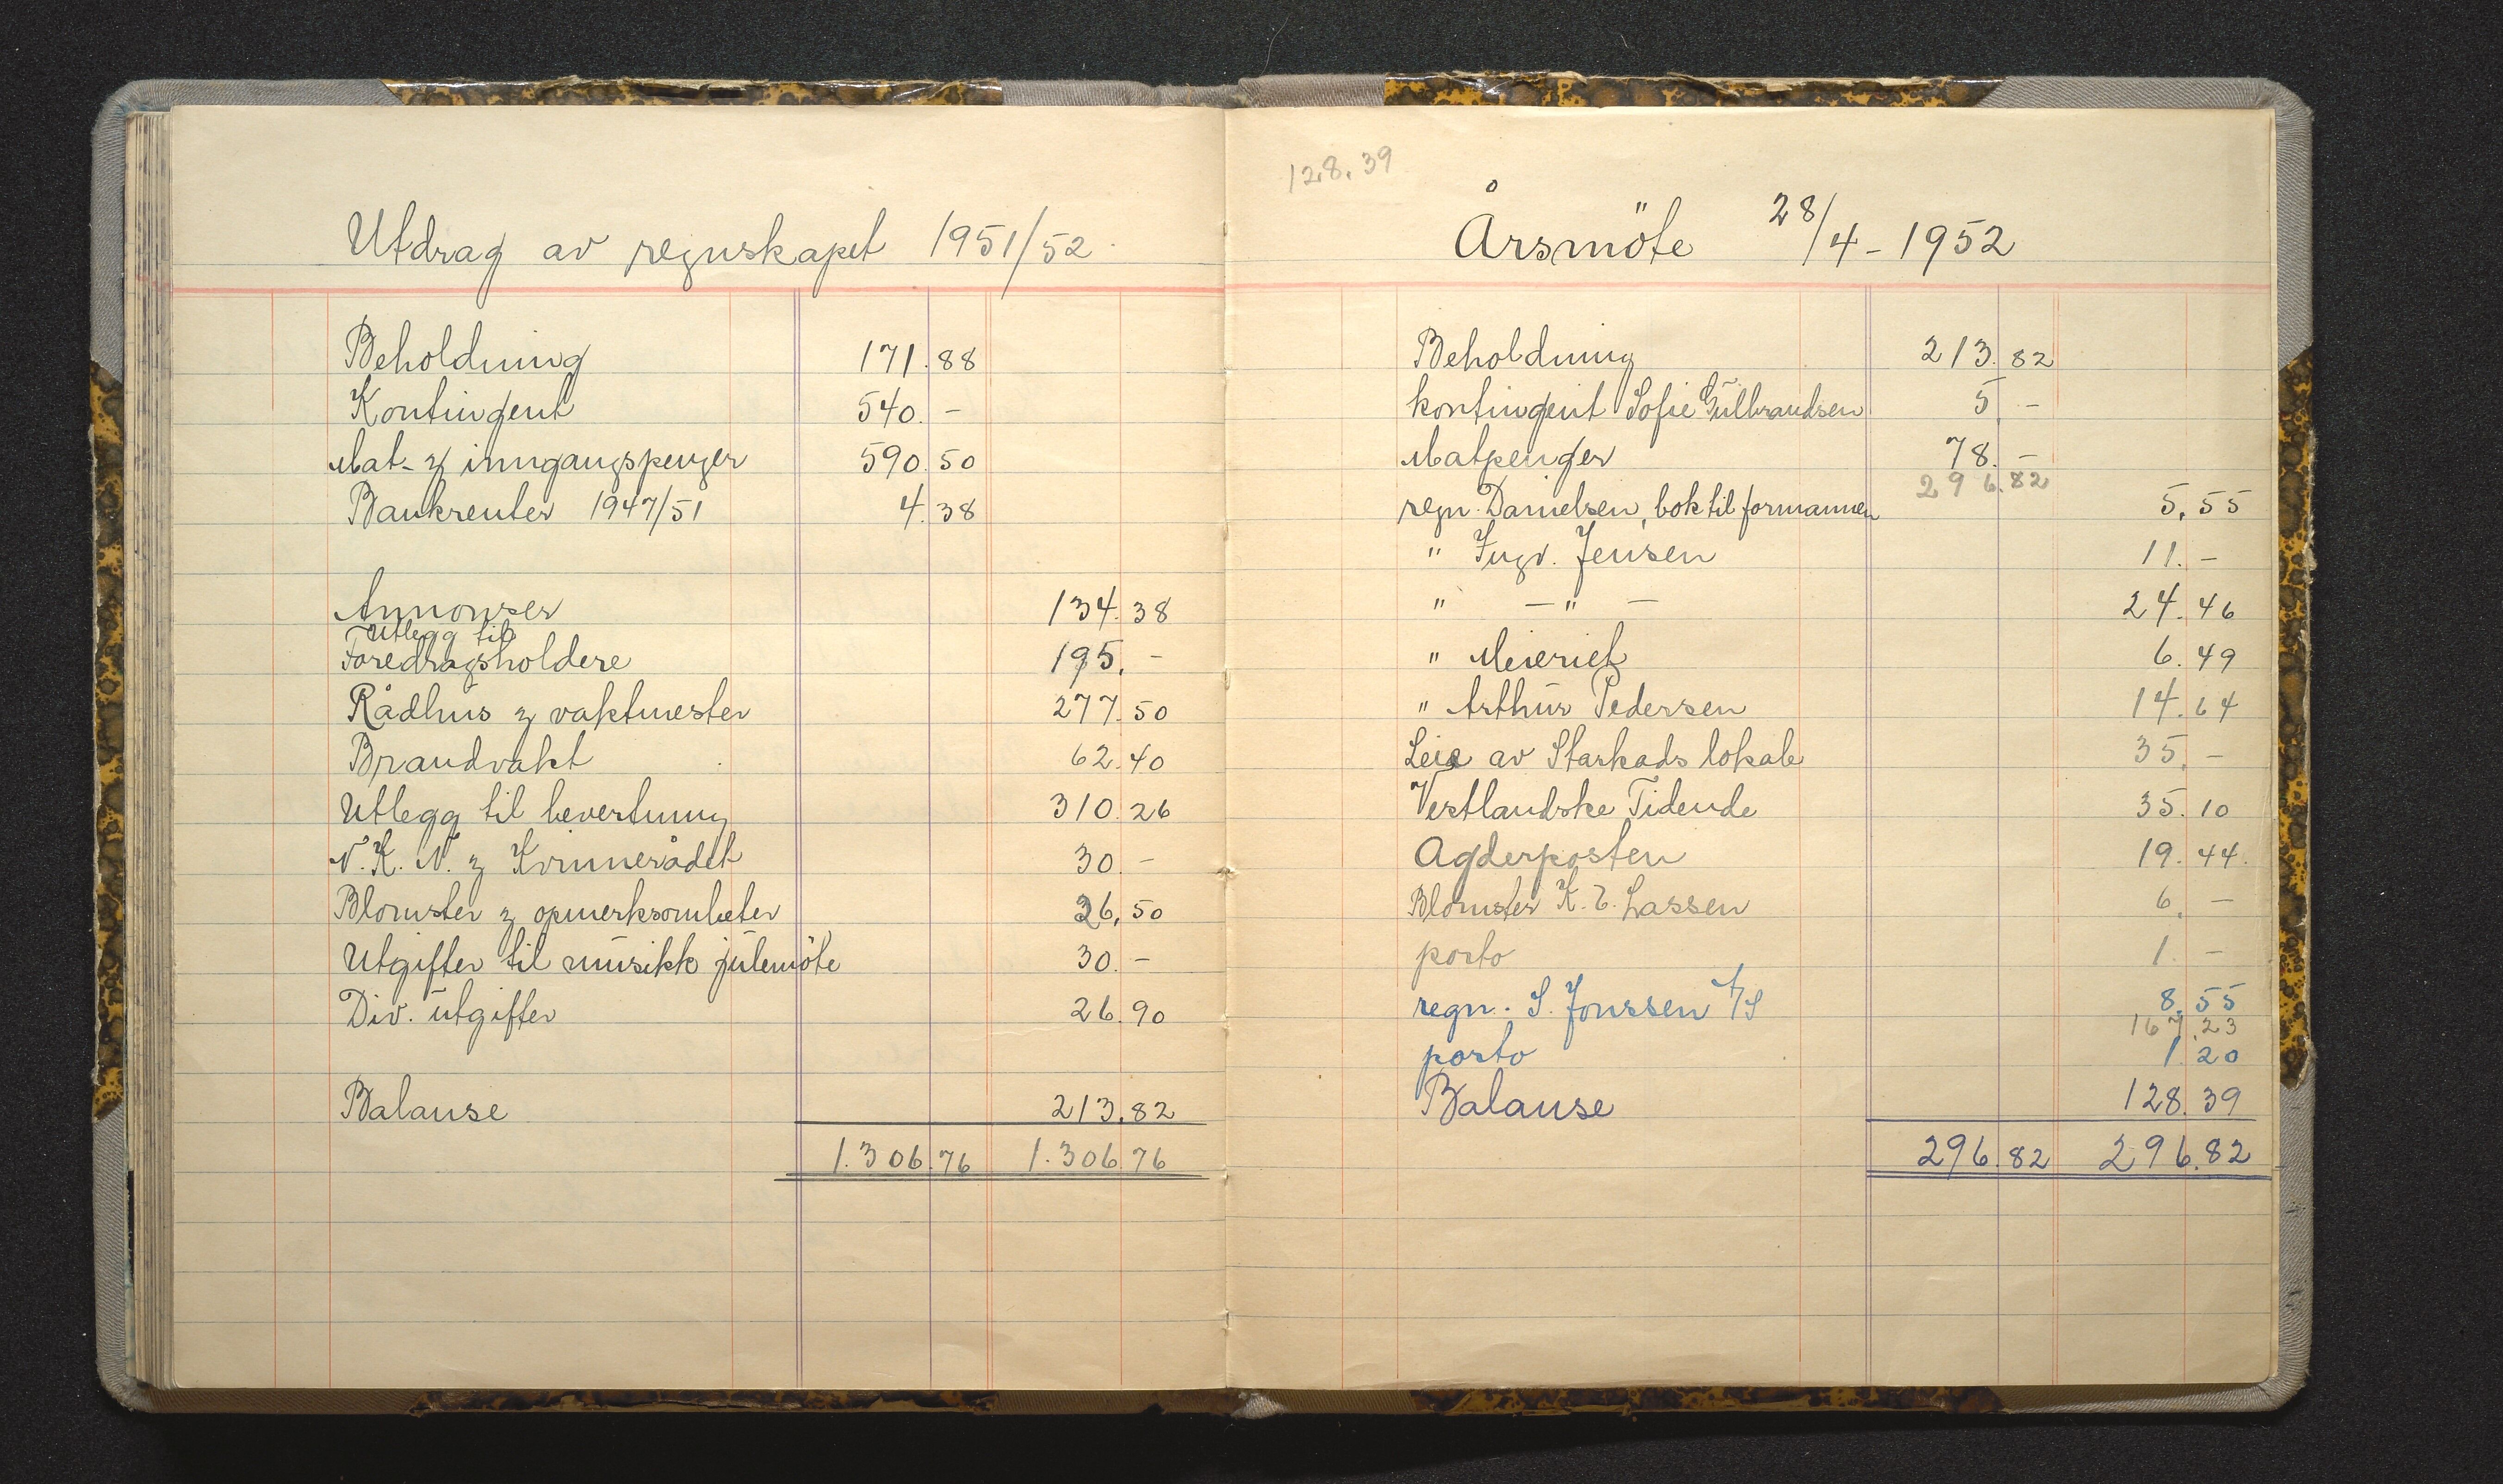 Utdrag av regnskapet 1951/52
Beholdning 171.88
Kontingent 540.-
Mat- og inngangspenger 590.50
Bankrenter 1947/51 4.38
Annonser 134.38
Utlegg til
Foredragsholdere 195.-
Rådhus og vaktmester 277.50
Brandvakt 62.40
Utlegg til bevertning 310.26
N.K.N. og Kvinnerådet 30.-
Blomster og opmerksomheter 26,50
Utgifter til musikk julemöte 30.-
Div. utgifter 26.90
Balanse 213.82
1.306.76 1.306.76
128.39
Årsmöte 28/4-1952
Beholdning 213.82
kontingent Sofie Gulbrandsen 5 -
Matpenger 78.-
296.82
regn. Danielsen, bok til formannen 5.55
" Ingv. Jensen 11.-
" -"- 24.46
" Meieriet 6.49
" Arthur Pedersen 14.64
Leie av Starkads lokale 35.-
Vestlandske Tidende 35.10
Agderposten 19.44.
Blomster K. E. Lassen 6.-
porto 1.-
regn. S. Jonssen A/S 8.55
167.23
porto 1.20
Balanse 128.39
296.82 296.82